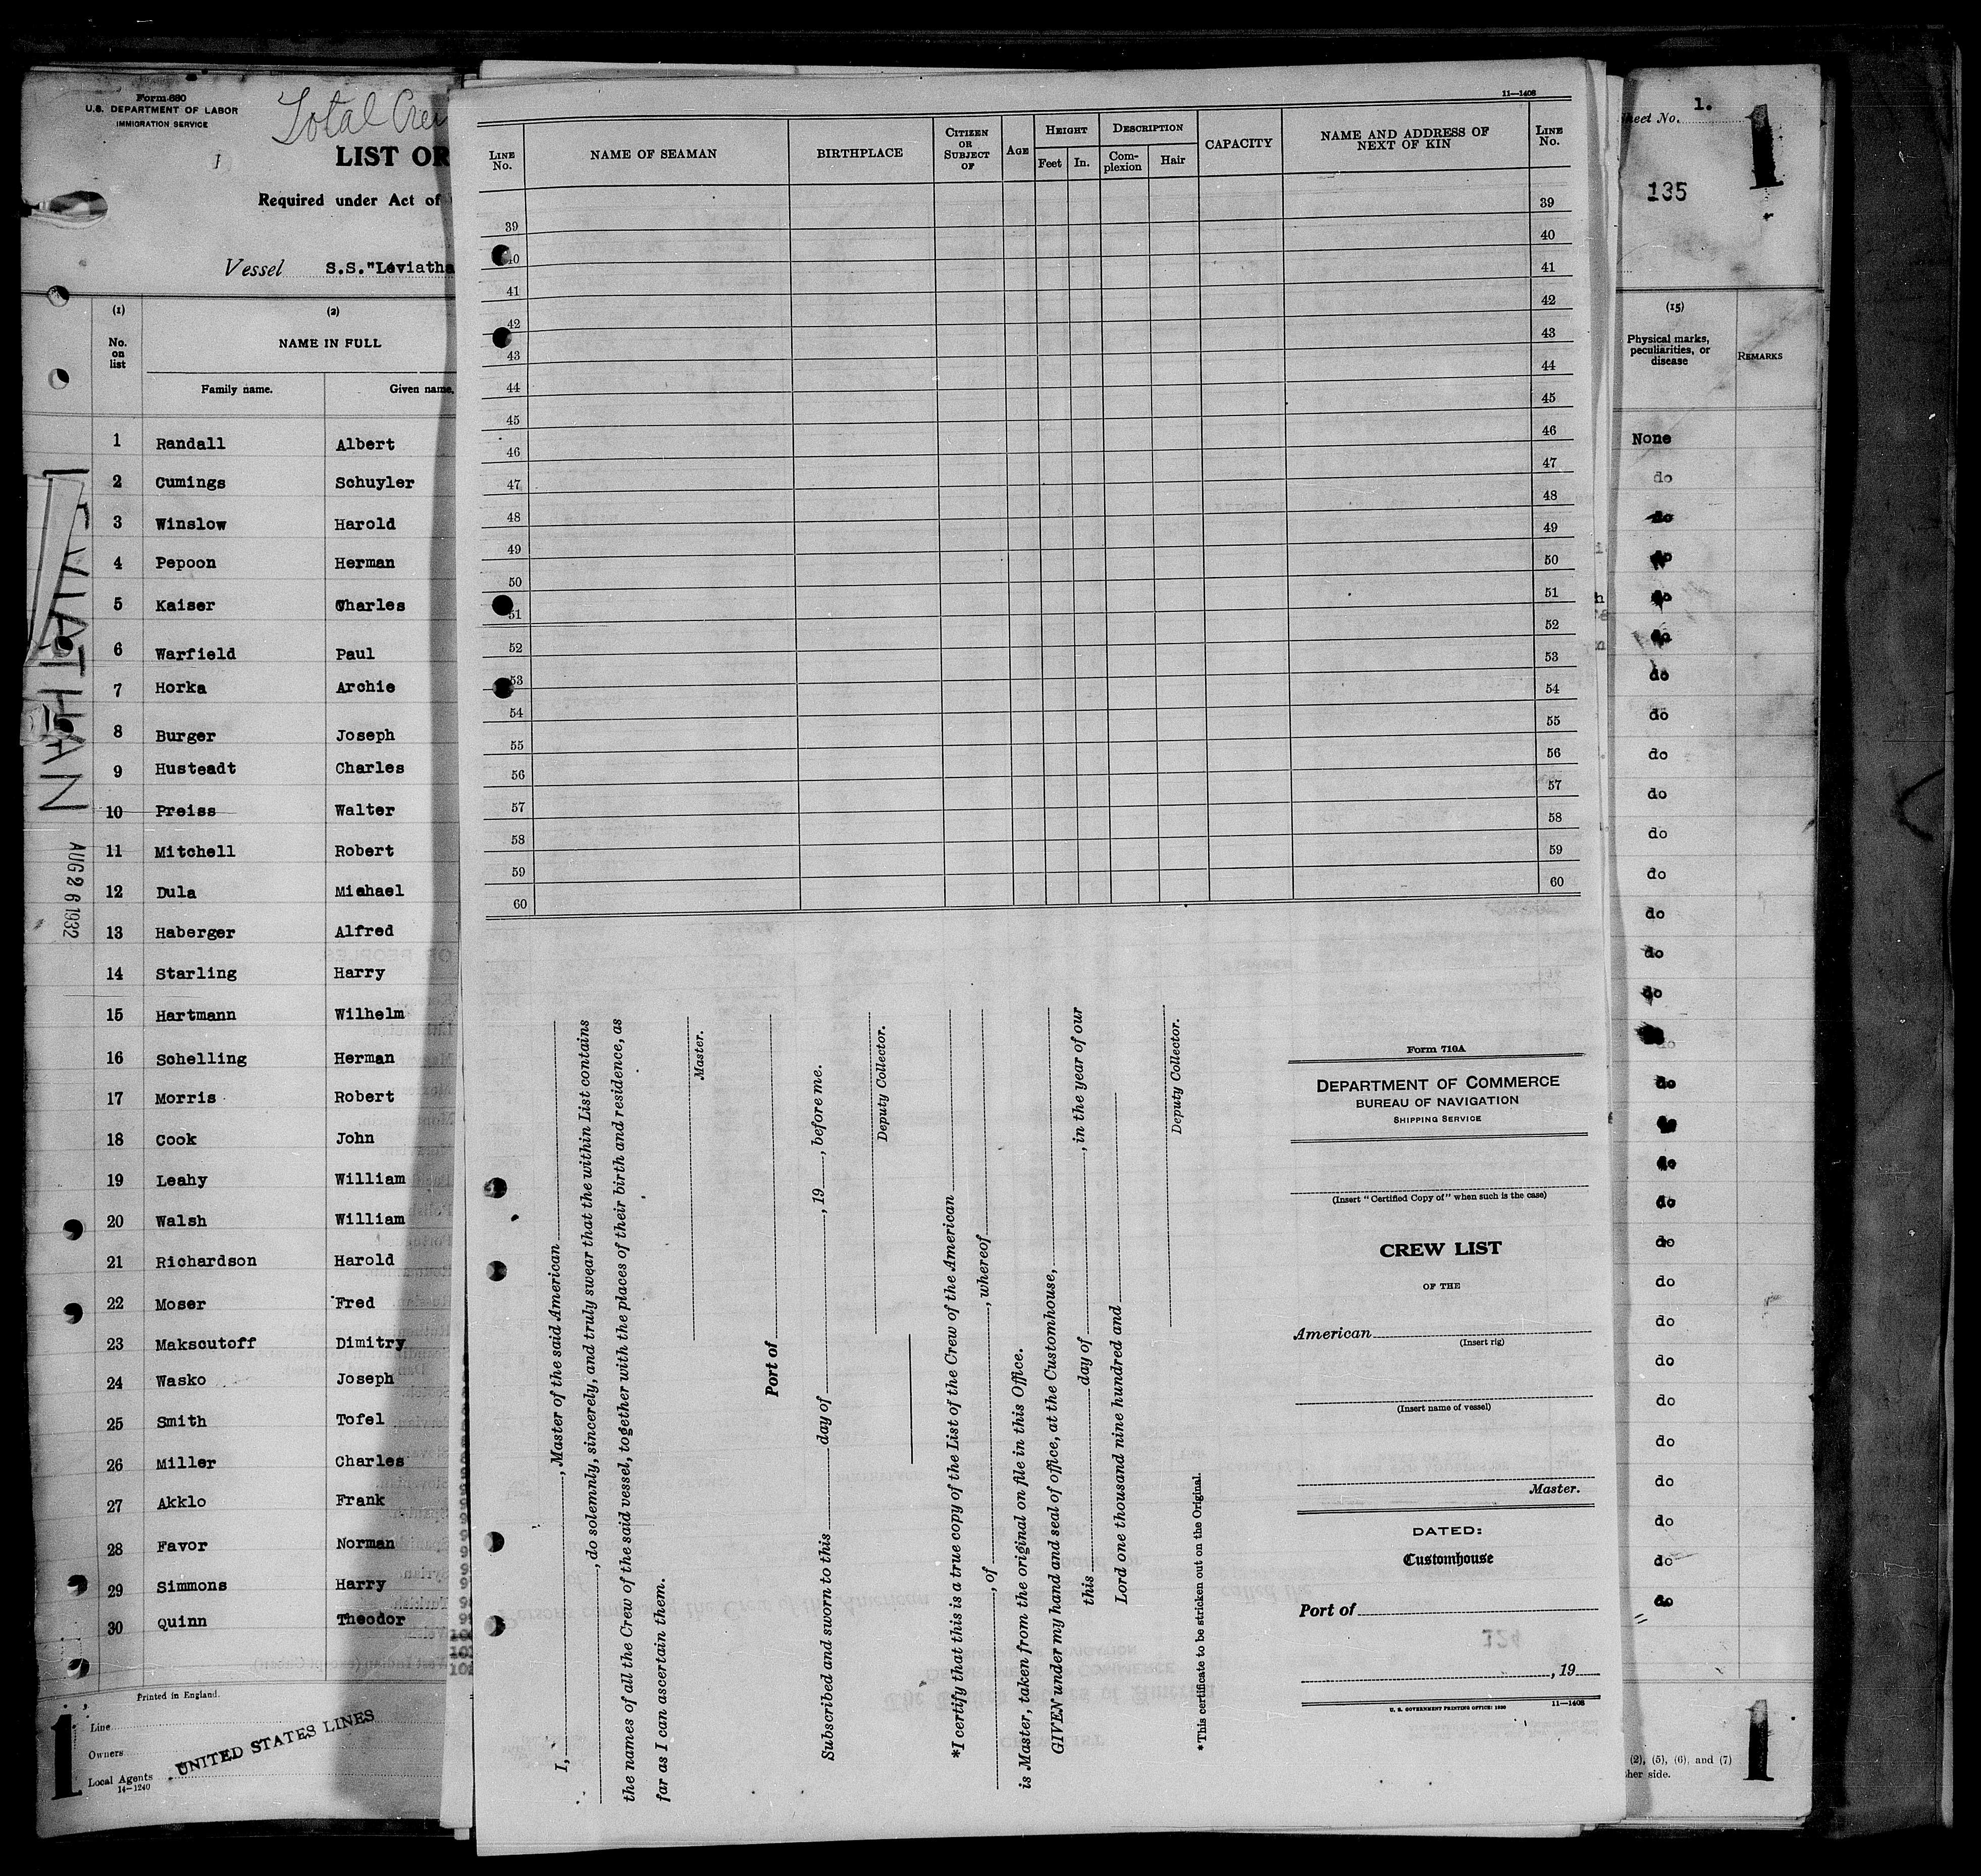 Form 680
U.S. DEPARTMENT OF LABOR
IMMIGRATION SERVICE
Total Crew
1
LIST OR
Required under Act of
Vessel S.S."Leviatha
(1) (2)
No. on list
NAME IN FULL
Family name. Given name.
1 Randall Albert
2 Cumings Schuyler
3 Winslow Harold
4 Pepoon Herman
5 Kaiser Charles
6 Warfield Paul
7 Horka Archie
8 Burger Joseph
9 Husteadt Charles
10 Preiss Walter
11 Mitchell Robert
12 Dula Michael
13 Haberger Alfred
14 Starling Harry
15 Hartmann Wilhelm
16 Schelling Herman
17 Morris Robert
18 Cook John
19 Leahy William
20 Walsh William
21 Richardson Harold
22 Moser Fred
23 Maksoutoff Dimitry
24 Wasko Joseph
25 Smith Tofel
26 Miller Charles
27 Akklo Frank
28 Favor Norman
29 Simmons Harry
30 Quinn Theodor
Printed in England.
1
Line
Owners
Local Agents
14-1240
UNITED STATES LINES
LEVIATHAN
AUG 26 1932
11—1408
LINE No. NAME OF SEAMAN BIRTHPLACE CITIZEN OR SUBJECT OF AGE HEIGHT DESCRIPTION CAPACITY NAME AND ADDRESS OF NEXT OF KIN LINE No.
Feet In. Complexion Hair
39 39
40 40
41 41
42 42
43 43
44 44
45 45
46 46
47 47
48 48
49 49
50 50
51 51
52 52
53 53
54 54
55 55
56 56
57 57
58 58
59 59
60 60
I, , Master of the said American
, do solemnly, sincerely, and truly swear that the within List contains
the names of all the Crew of the said vessel, together with the places of their birth and residence, as
far as I can ascertain them.
Master.
Port of
Subscribed and sworn to this day of , 19 , before me.
Deputy Collector.
*I certify that this is a true copy of the List of the Crew of the American
, of , whereof
is Master, taken from the original on file in this Office.
GIVEN under my hand and seal of office, at the Customhouse,
this day of , in the year of our
Lord one thousand nine hundred and
Deputy Collector.
*This certificate to be stricken out on the Original.
Form 710A
DEPARTMENT OF COMMERCE
BUREAU OF NAVIGATION
SHIPPING SERVICE
(Insert "Certified Copy of" when such is the case)
CREW LIST
OF THE
American
(Insert rig)
(Insert name of vessel)
Master.
DATED:
Customhouse
Port of
, 19
U. S. GOVERNMENT PRINTING OFFICE: 1930 11—1408
Sheet No. 1.
1
135
(15)
Physical marks, peculiarities, or disease
REMARKS
None
do
do
do
do
do
do
do
do
do
do
do
do
do
do
do
do
do
do
do
do
do
do
do
do
do
do
do
do
do
(2), (5), (6), and (7)
her side.
1